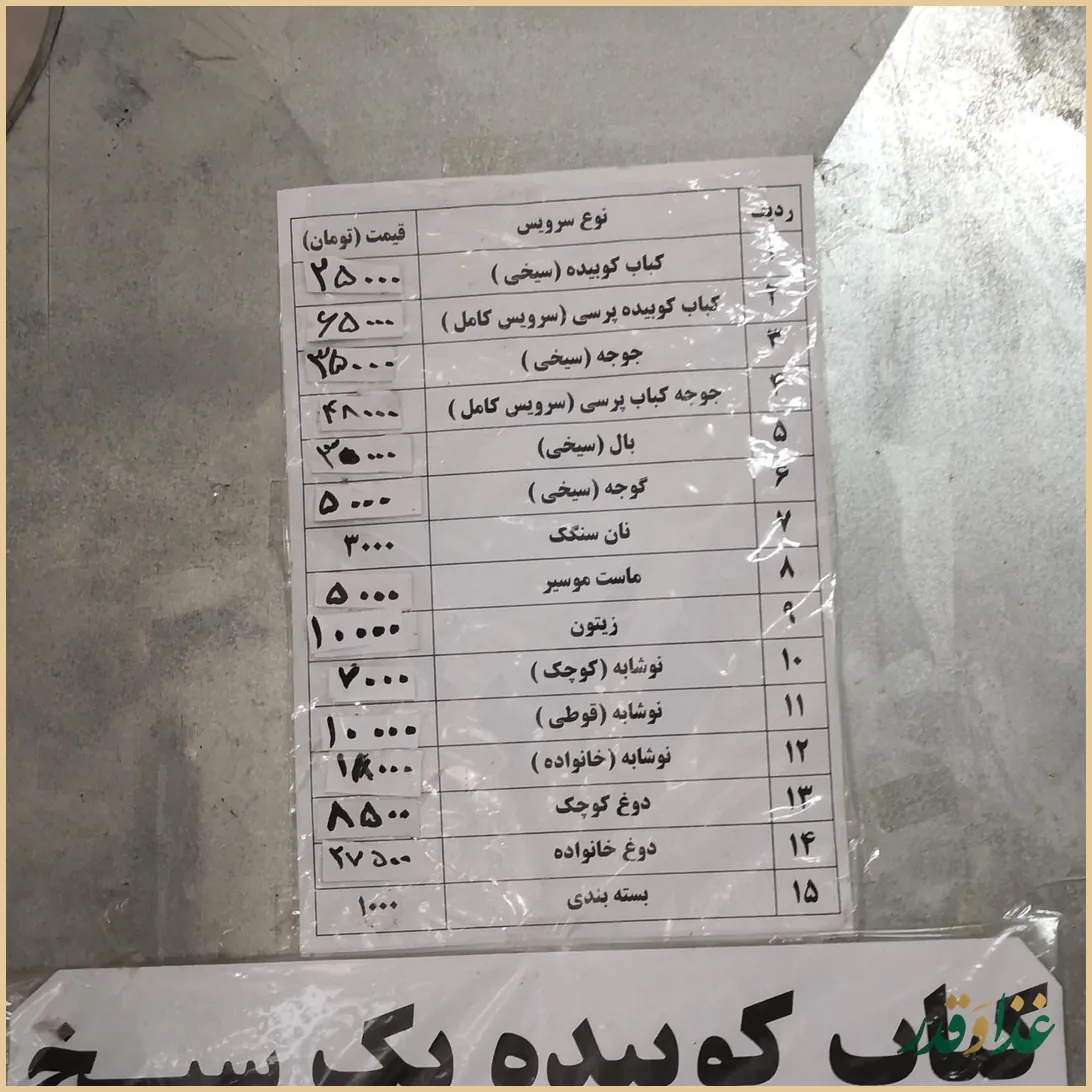 ردیف نوع سرویس قیمت (تومان)
کباب کوبیده (سیخی) ۲۵۰۰۰
۲ کباب کوبیده پرسی (سرویس کامل) ۶۵۰۰۰
۳ جوجه (سیخی) ۳۵۰۰۰
۴ جوجه کباب پرسی (سرویس کامل) ۴۸۰۰۰
۵ بال (سیخی)
۶ گوجه (سیخی) ۵۰۰۰
۷ نان سنگک ۳۰۰۰
۸ ماست موسیر ۵۰۰۰
۹ زیتون ۱۰۰۰۰
۱۰ نوشابه (کوچک) ۷۰۰۰
۱۱ نوشابه (قوطی) ۱۰۰۰۰
۱۲ نوشابه (خانواده)
۱۳ دوغ کوچک ۸۵۰۰
۱۴ دوغ خانواده ۲۷۵۰۰
۱۵ بسته بندی ۱۰۰۰
کباب کوبیده یک سیخ
غذا و قدر